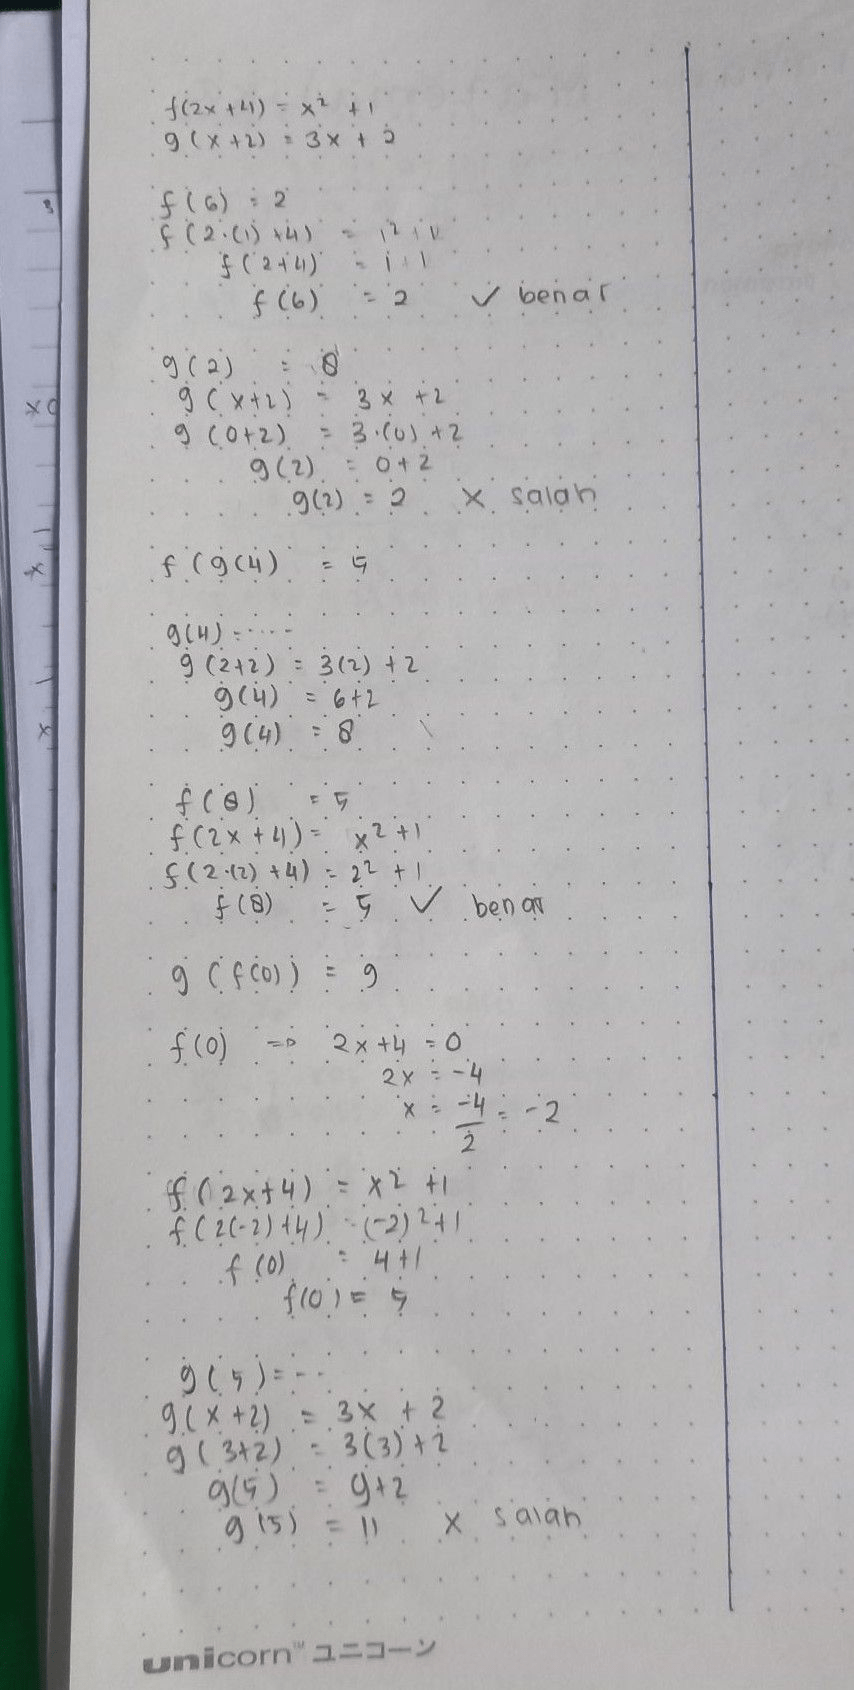 f(2x+4) = x² + 1
g(x+2) = 3x + 2
f(6) = 2
f(2·(1)+4) = 1²+1
f(2+4) = 1+1
f(6) = 2 ✓ benar
g(2) = 8
g(x+2) = 3x +2
g(0+2) = 3·(0)+2
g(2) = 0+2
g(2) = 2 × salah
f(g(4) = 5
g(4) = ....
g(2+2) = 3(2)+2
g(4) = 6+2
g(4) = 8
f(8) = 5
f(2x+4) = x²+1
f(2·(2)+4) = 2²+1
f(8) = 5 ✓ benar
g(f(0)) = 9
f(0) => 2x+4 = 0
2x = -4
x = -4/2 = -2
f(2x+4) = x² +1
f(2(-2)+4) = (-2)²+1
f(0) = 4+1
f(0) = 5
g(5) = ...
g(x+2) = 3x + 2
g(3+2) = 3(3)+2
g(5) = 9+2
g(5) = 11 × salah
unicorn™ ユニコーン
x 0
x
x